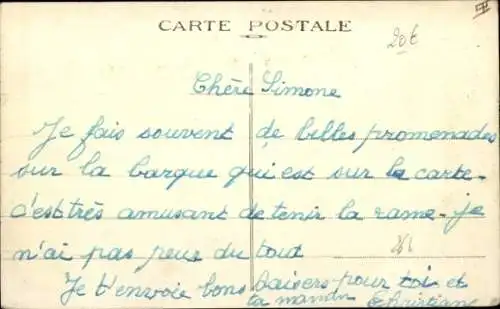 CARTE POSTALE
20€
Chère Simone
Je fais souvent de belles promenades
sur la barque qui est sur la carte.
c'est très amusant de tenir la rame. je
n'ai pas peur du tout
Je t'envoie bons baisers pour toi et
ta maman Christiane